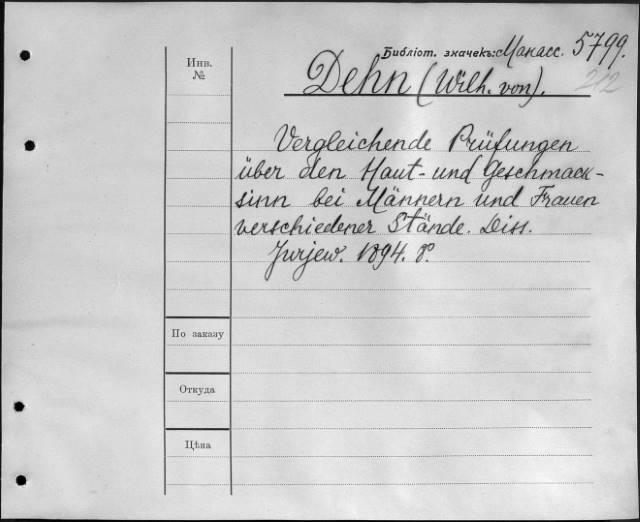 Библіот. значекъ: Манасс. 5799.
212
Инв.
№
Dehn (Wilh. von).
Vergleichende Prüfungen
über den Haut- und Geschmack-
sinn bei Männern und Frauen
verschiedener Stände. Diss.
Jurjew. 1894. 8°.
По заказу
Откуда
Цѣна